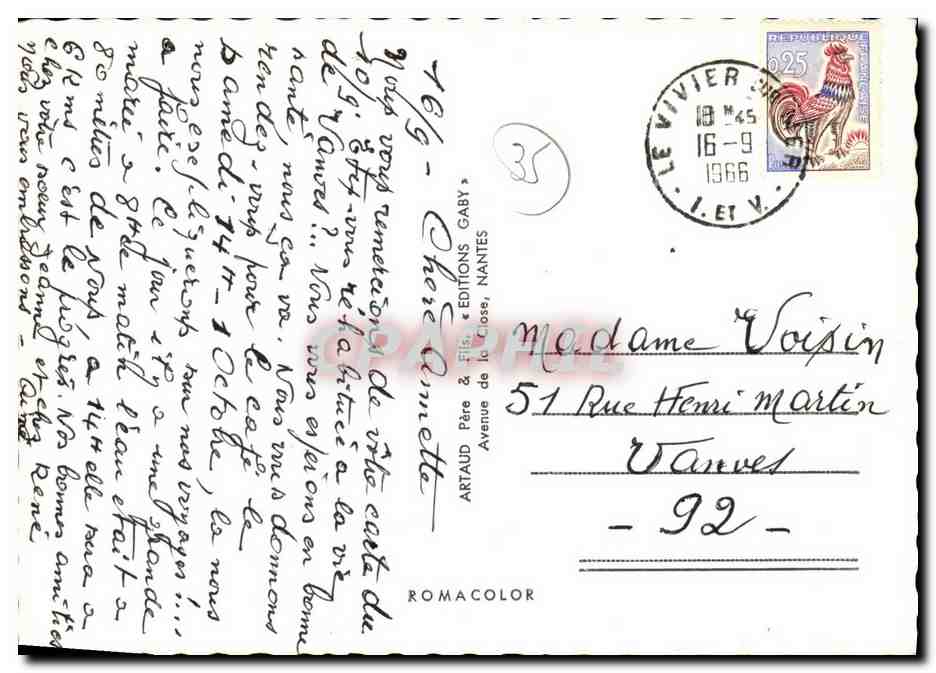 16/9 - Chère Annette
Nous vous remercions de votre carte du
10/9. Etes-vous réhabituée à la vie
de Vanves?.. Nous vous espérons en bonne
santé, nous ça va. Nous vous donnons
rendez-vous pour le café le
samedi - 14 H - 1 Octobre, là nous
nous sur nos voyages!...
a faire. Ce jour il y a une grande
marée a 8H le matin l'eau était a
80 mètres de Nous a 14H elle sera a
6 Kms c'est le progrès. Nos bonnes amitiés
chez votre soeur Jeanne et chez René
nous vous embrassons - Aimé
ARTAUD Père & Fils, « EDITIONS GABY »
Avenue de la Close, NANTES
ROMACOLOR
35
LE VIVIER SUR MER
18 H 45
16 - 9
1966
I. ET V.
REPUBLIQUE FRANÇAISE
0,25
Madame Voisin
51 Rue Henri Martin
Vanves
- 92 -
CPAPHIL